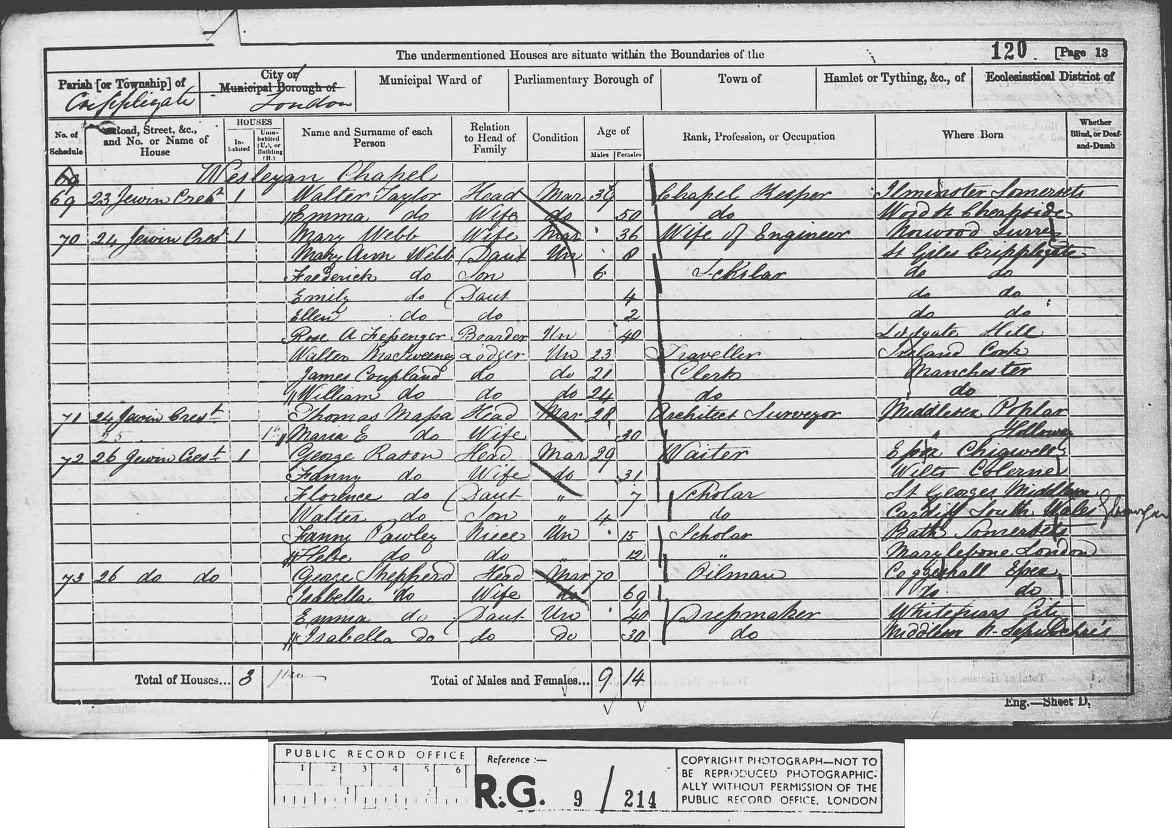 The undermentioned Houses are situate within the Boundaries of the
120 [Page 13
Parish [or Township] of
Cripplegate
City or Municipal Borough of
London
Municipal Ward of
Parliamentary Borough of
Town of
Hamlet or Tything, &c., of
Ecclesiastical District of
No. of Schedule
Road, Street, &c., and No. or Name of House
HOUSES
Inhabited
Uninhabited (U.), or Building (B.)
Name and Surname of each Person
Relation to Head of Family
Condition
Age of
Males
Females
Rank, Profession, or Occupation
Where Born
Whether Blind, or Deaf-and-Dumb
69 Wesleyan Chapel
69 23 Jewin Crest 1 Walter Taylor Head Mar 39 Chapel Keeper Ilminster Somersets
Emma do Wife do 50 do Wood St Cheapside
70 24 Jewin Crest 1 Mary Webb Wife Mar 36 Wife of Engineer Norwood Surrey
Mary Ann Webb Daut Un 8 St Giles Cripplegate
Frederick do Son 6 Scholar do do
Emily do Daut 4 do do
Ellen do do 2 do do
Rose A Boarder Un 40 Hill
Walter MacSweeney Lodger Un 23 Traveller Ireland Cork
James Coupland do do 21 Clerk Manchester
William do do do 24 do do
71 24 Jewin Crest Thomas Head Mar 28 Architect Surveyor Middlesex Poplar
25 1 Maria E do Wife 30 " Holloway
72 26 Jewin Crest 1 George Rason Head Mar 29 Waiter Essex Chigwell
Fanny do Wife do 31 Wilts Colerne
Florence do Daut " 7 Scholar St Georges Middlesex
Walter do Son " 4 do Cardiff South Wales Glamorgan
Fanny Pawley Niece Un 15 Scholar Bath Somerset
Hebe do do " 12 " Marylebone London
73 26 do do George Shepherd Head Mar 70 Oilman Coggeshall Essex
Isabella do Wife do 69 Do do
Emma do Daut Un 40 Dressmaker Whitefriars City
Isabella do do do 30 do Middlesex St Sepulchre's
Total of Houses... 3
Total of Males and Females... 9 14
Eng.—Sheet D.
PUBLIC RECORD OFFICE
1 2 3 4 5 6
Reference :—
R.G. 9 / 214
COPYRIGHT PHOTOGRAPH—NOT TO
BE REPRODUCED PHOTOGRAPHIC-
ALLY WITHOUT PERMISSION OF THE
PUBLIC RECORD OFFICE, LONDON